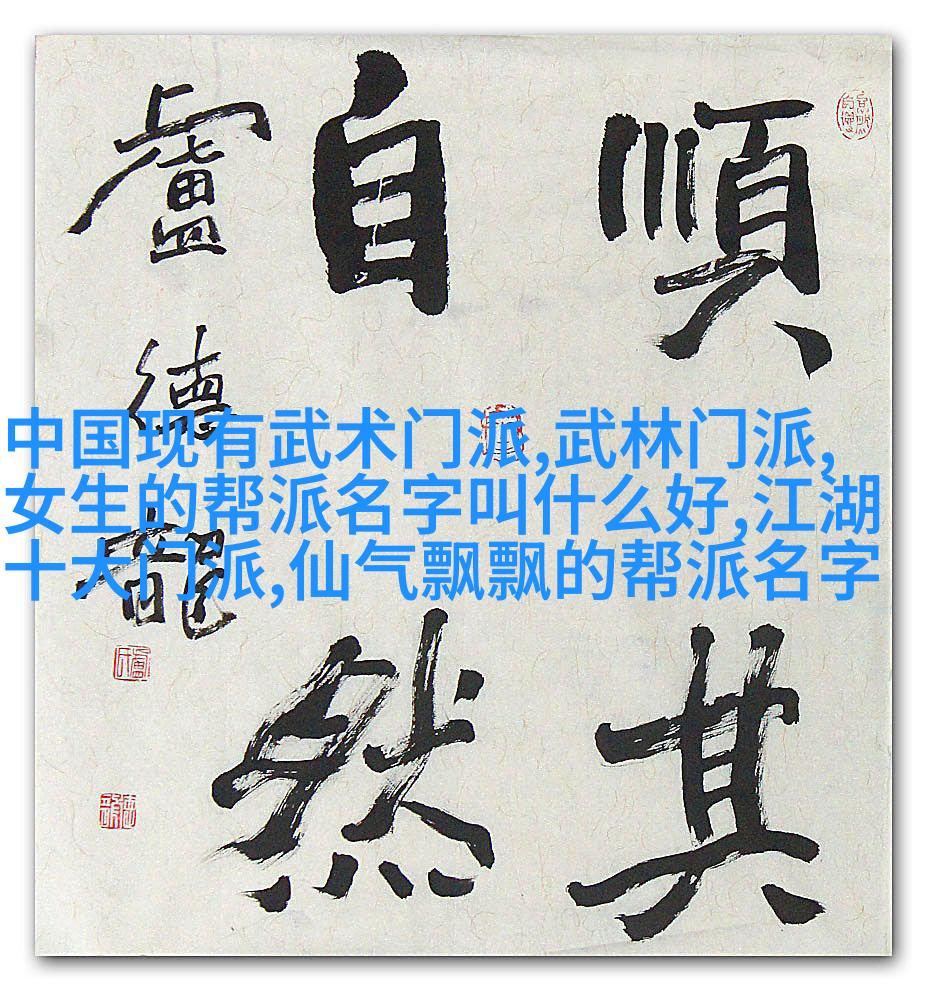 順其
自然
盧德龍
中国现有武术门派,武林门派,
女生的帮派名字叫什么好,江湖
十大门派,仙气飘飘的帮派名字